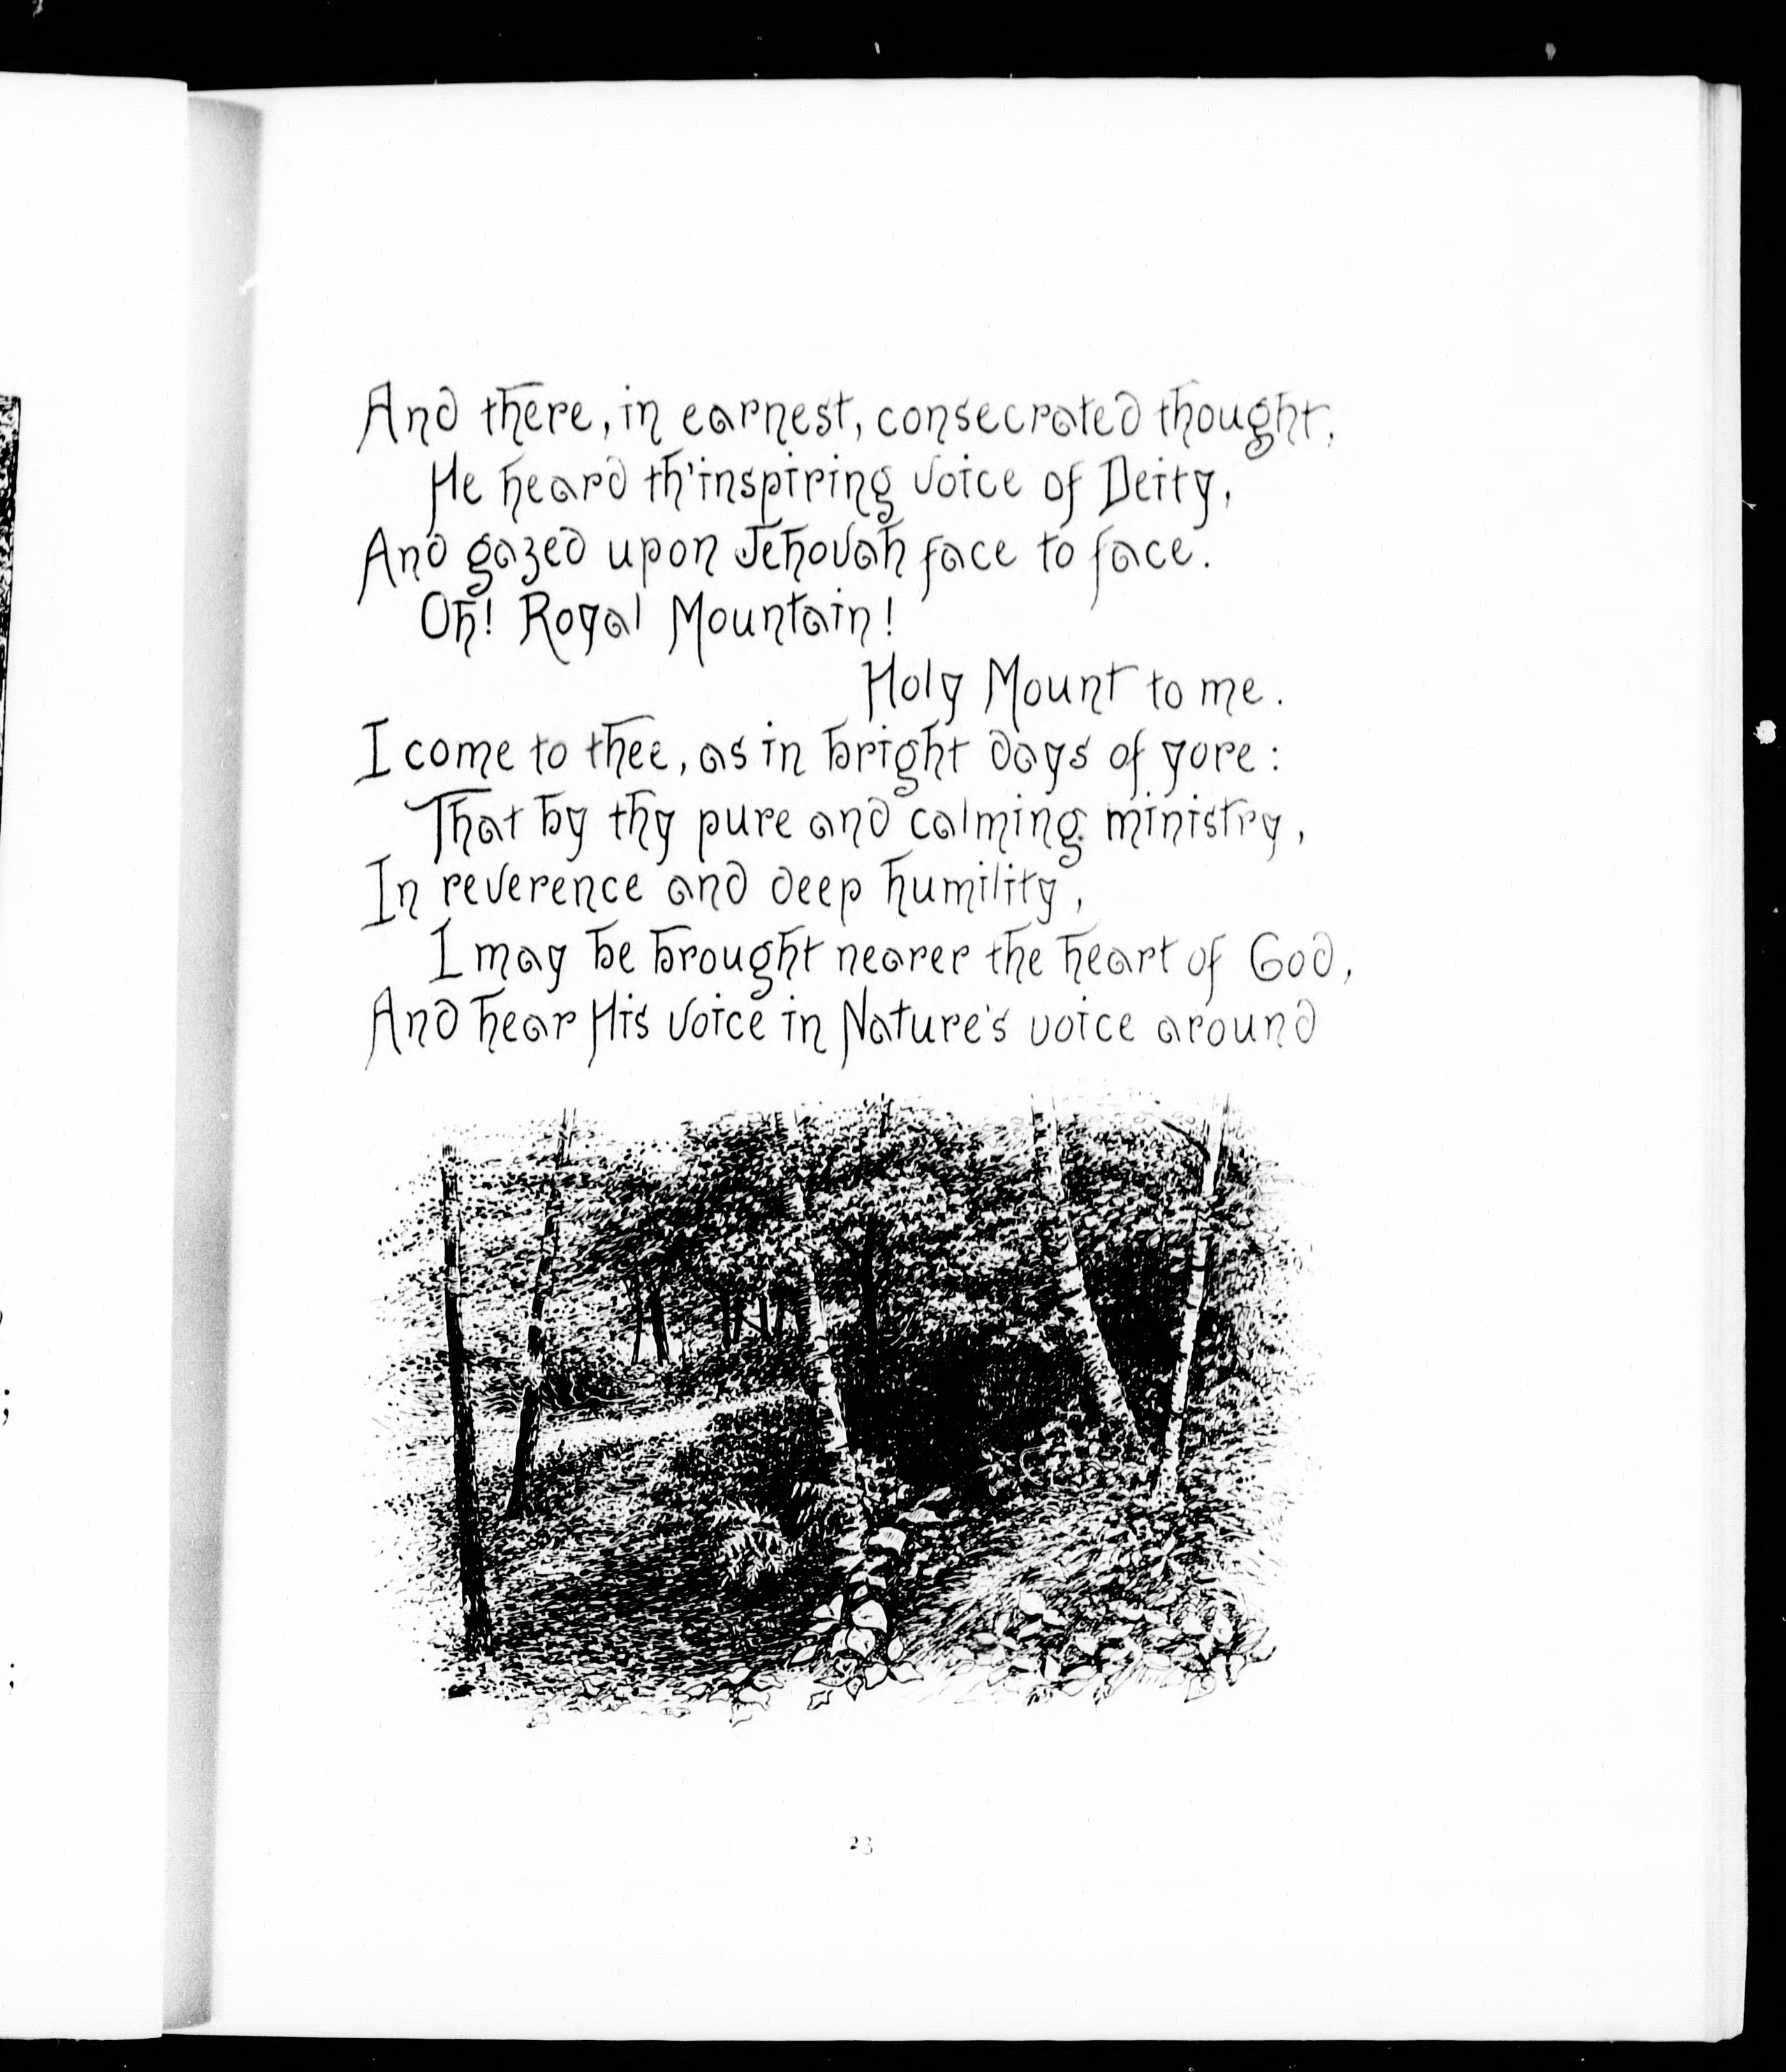 And there, in earnest, consecrated thought,
He heard th'inspiring voice of Deity,
And gazed upon Jehovah face to face.
Oh! Royal Mountain!
Holy Mount to me.
I come to thee, as in bright days of yore:
That by thy pure and calming ministry,
In reverence and deep humility,
I may be brought nearer the heart of God,
And hear His voice in Nature's voice around
23